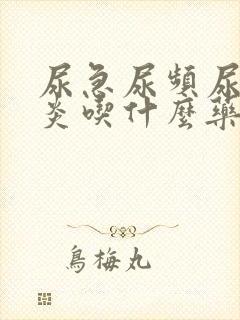 尿急尿頻尿
炎喫什麼藥
烏梅丸